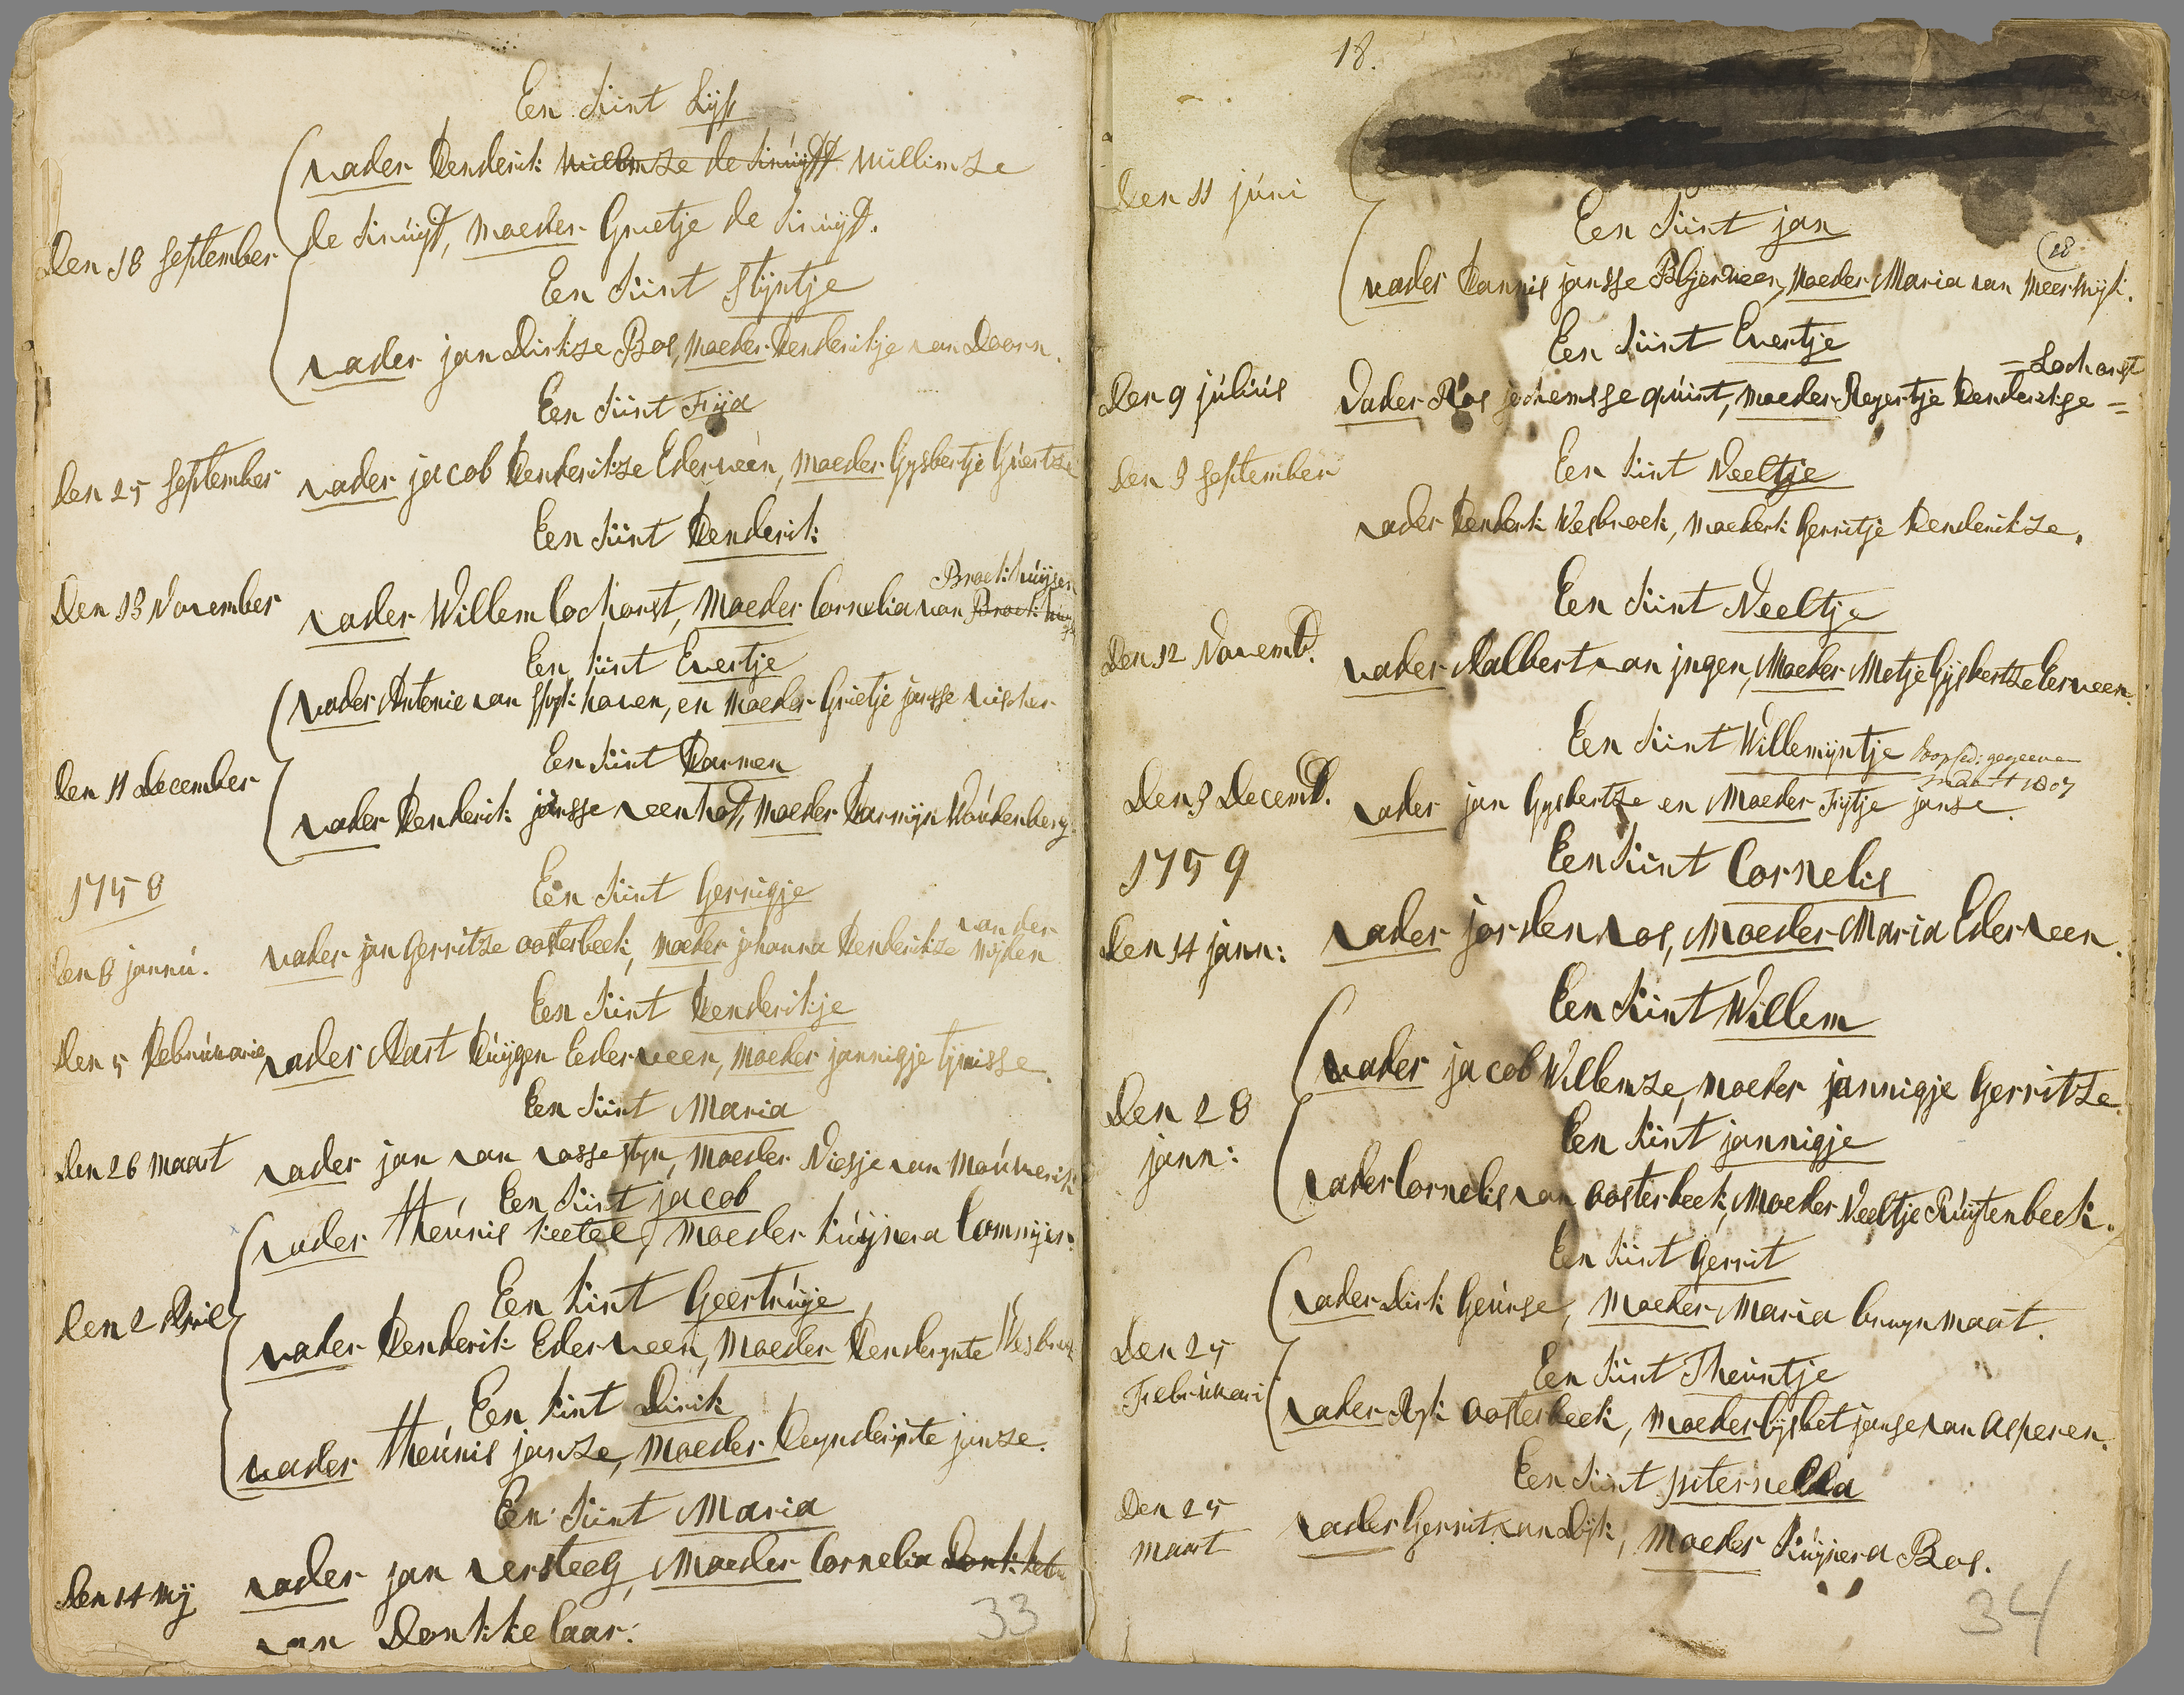 Een kint Lijs
vader Henderik willemze de kruijff willimze
Den 18 September de kruijf, moeder Grietje de kruijf.
Een kint Stijntje
vader jan Dirkze Bos, moeder Henderikje van Doorn.
Een kint Fija
den 25 September vader jacob Henderikze Ederveen, moeder Gysbertje Guertze
Een kint Henderik
Broekhuijsen
Den 13 November vader Willem lochorst, moeder Cornelia van
Een kint Evertje
vader Antonie van Slijkhoven, en moeder Grietje jansse vischer
Een kint Harmen
den 11 december vader Henderik jansse veenhof, moeder Harmijn Woudenberg
1758
Een kint Gerrigje
van der
den 8 jannu. vader jan Gerritze oosterbeek, moeder johanna Henderikze wijden
Een kint Henderikje
den 5 Februwarie vader Aart Huijgen Eederveen, moeder jannigje tijmisse
Een kint Maria
den 26 maart vader jan van vossestyn, moeder Niesje van Mouwerik
Een kint jacob
vader theunis keetel, moeder kuijnera
den 2 April
Een kint Geertruije
vader Henderik Ederveen, moeder Henderynte
Een kint Dirik
vader theunis janze, moeder Reynderynte janze.
Een kint Maria
Den 14 mij vader jan versteeg, moeder Cornelia
van Donkkelaar:
33
18.
den 11 juni
Een kint jan
18
vader Hannis jansse Blyerveen, moeder Maria van Meerwijk.
Een kint Evertje
= Lochorst
den 9 julius vader Ros jochemsse quint, moeder Reyertje Henderikse =
Een kint Neeltje
den 3 September vader Henderk Wesbroek, moederk Gerritje Henderikze.
Een kint Neeltje
Den 12 Novemb. vader Aalbert van jngen, Moeder Metje Gijsbertze Eerveen.
Een kint Willemijntje doopsed: gegeeven
maart 1807
Den 3 Decemb. vader jan Gysbertze en Moeder Fijtje janse.
1759
Een kint Cornelis
den 14 jann: vader jorden vos, Moeder Maria Ederveen.
Een kint Willem
vader jacob Willemze, moeder jannigje Gerritze
Den 28
jann:
Een kint jannigje
vader Cornelis van oosterbeek, Moeder Neeltje Ruijtenbeek.
Een kint Gerrit
vader Dirk Geurse, Moeder Maria bruynmaat.
Den 25
Februwari
Een kint Theuntje
vader Ryk oosterbeek, moeder lijsbet janse van Asperen.
Een kint piternella
Den 25
maart vader Gerrit van Dijk, Moeder Kuijnera Bos.
34